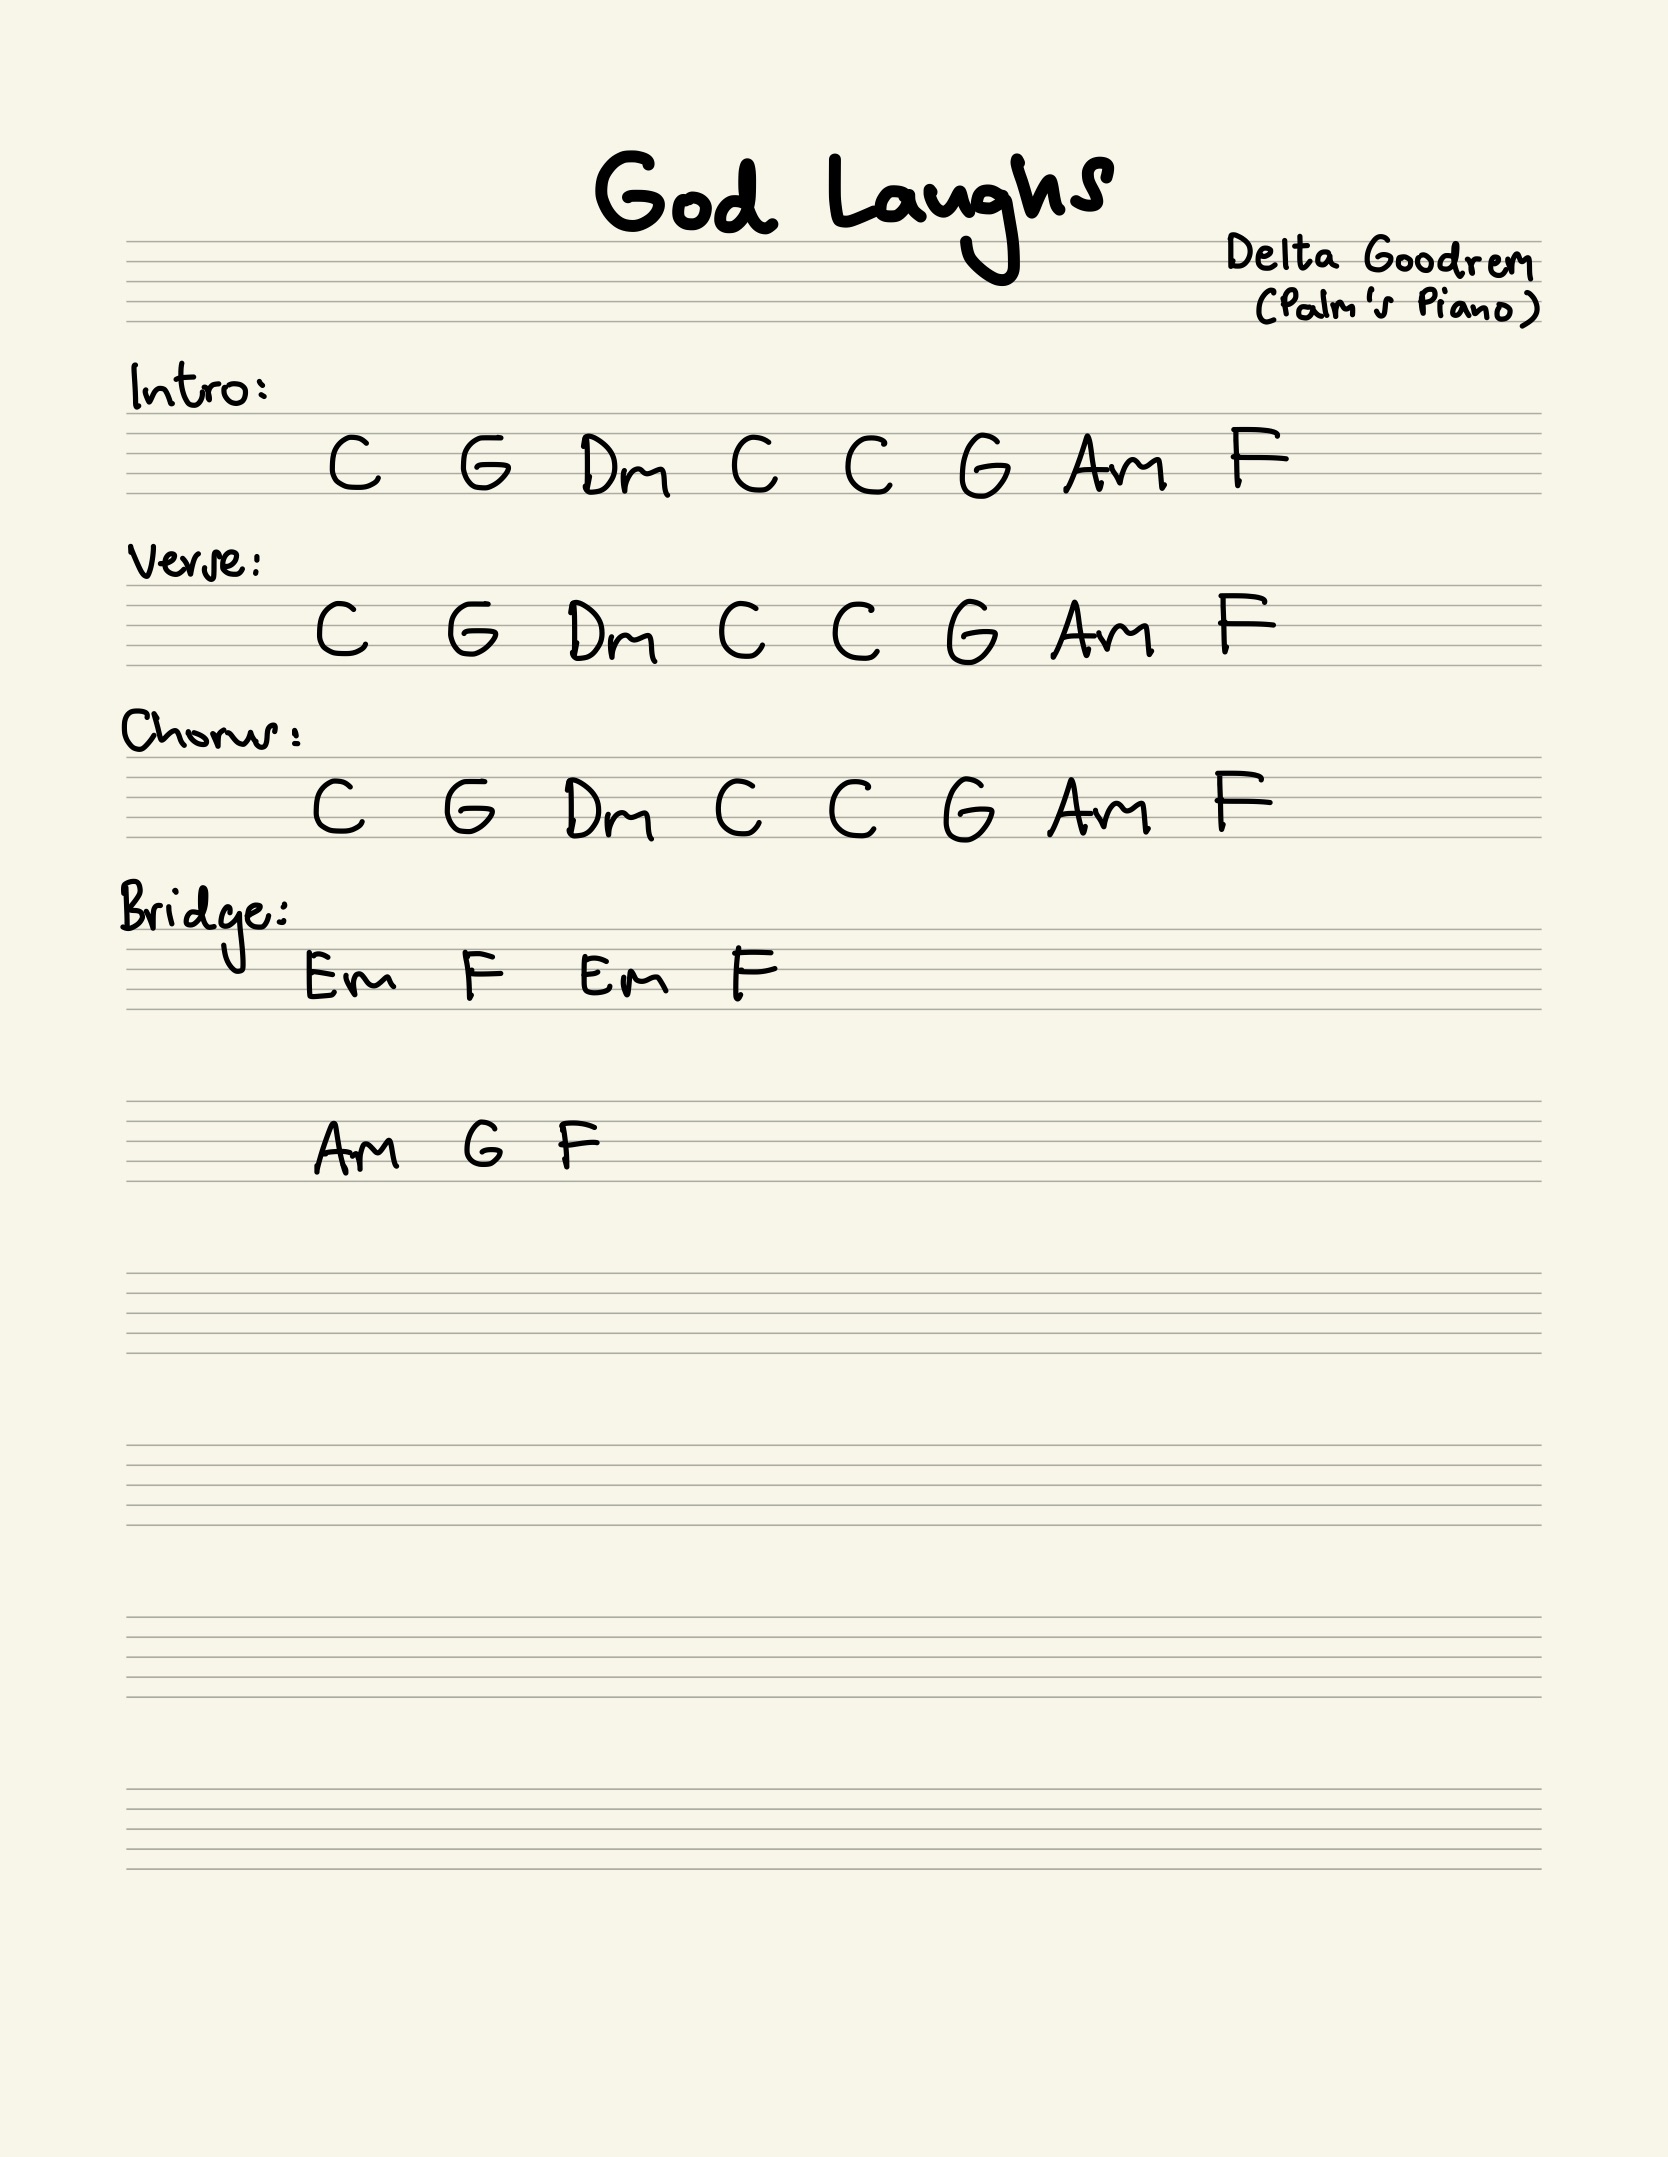 God Laughs
Delta Goodrem
(Palm's Piano)
Intro:
C G Dm C C G Am F
Verse:
C G Dm C C G Am F
Chorus:
C G Dm C C G Am F
Bridge:
Em F Em F
Am G F